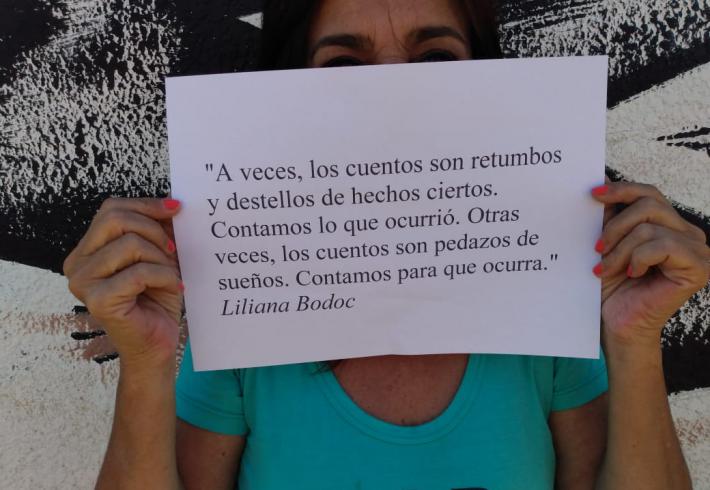 "A veces, los cuentos son retumbos
y destellos de hechos ciertos.
Contamos lo que ocurrió. Otras
veces, los cuentos son pedazos de
sueños. Contamos para que ocurra."
Liliana Bodoc